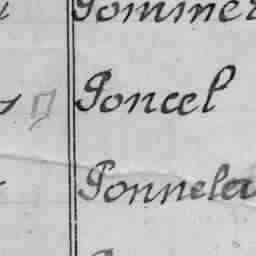 Pommer
Poncel
Ponnela